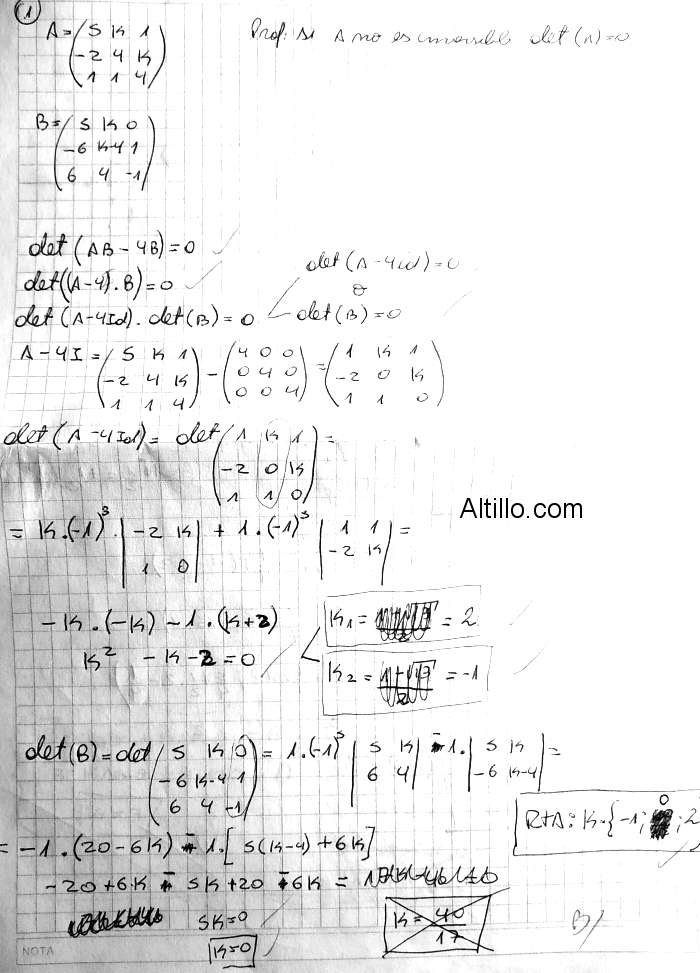 1
A = ( 5 K 1
-2 4 K
1 1 4 )
Prop: si A no es inversible det(A)=0
B = ( 5 K 0
-6 K-4 1
6 4 -1 )
det(AB-4B)=0
det((A-4).B)=0
det(A-4Id).det(B)=0
det(A-4id)=0
o
det(B)=0
A-4I = ( 5 K 1
-2 4 K
1 1 4 ) - ( 4 0 0
0 4 0
0 0 4 ) = ( 1 K 1
-2 0 K
1 1 0 )
det(A-4Id) = det ( 1 K 1
-2 0 K
1 1 0 ) =
Altillo.com
= K.(-1)³. | -2 K
1 0 | + 1.(-1)³ | 1 1
-2 K | =
-K.(-K) -1.(K+2)
K² -K-2=0
K1 = = 2
K2 = = -1
det(B)=det ( 5 K 0
-6 K-4 1
6 4 -1 ) = 1.(-1)³ | 5 K
6 4 | -1. | 5 K
-6 K-4 | =
= -1.(20-6K) - 1.[ 5(K-4)+6K]
-20+6K - 5K+20 -6K =
5K=0
K=0
K = 40/17
RTA: K={-1; 0; 2
B/
NOTA